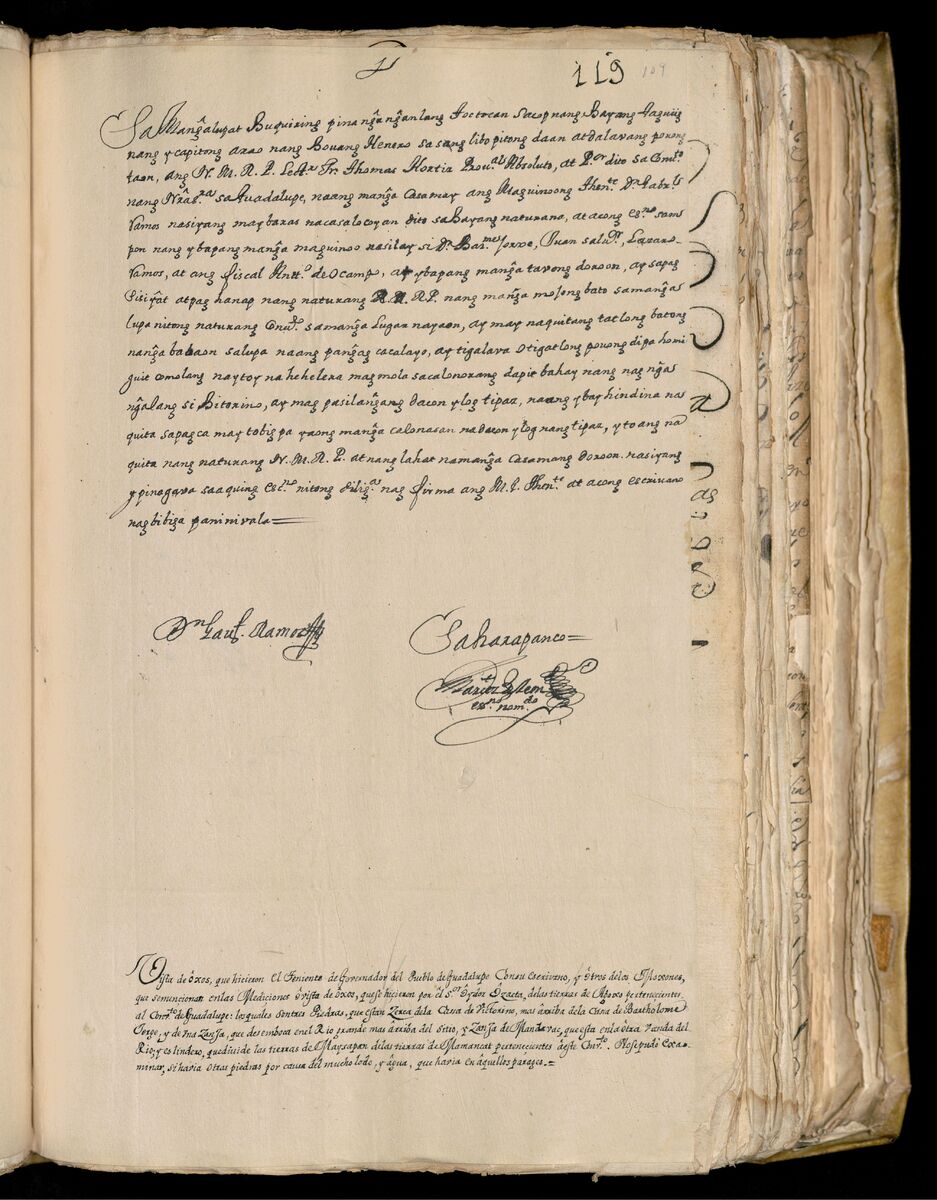 119 109
Sa Mangãlupat Buquiring pina ngãngãnlang Aoctocan Sacop nang Bayang Taguiig
nang ycapitong arao nang Bouang Henero sa sang libo pitong daan at dalavang povong
taon, ang N. M. R. P. Lector. Fr. Thomas Hortiz Prou.al Absoluto, at P.or dito sa Conu.to
nang Nrã s.ra sa Guadalupe, na ang mangã Casamay ang Maguinoong Then.te D.n Labr.s
Ramos nasiyang may baras nacasalocoyan dito sa Bayang naturano, at acong es.no sam
pon nang ybapang mangã maguinoo na silay si D.n Bar.me Jorxe, Juan salu.r, Lazaro
Ramos, at ang fiscal Antt.o de Ocampo, at ybapang mangã tavong doroon, ay sa pag
sisiyãt at pag hanap nang naturang R. P. nang mangã mojong bato sa mangã
lupa nitong naturang Conu.to sa mangã Lugar nayaon, ay may naquitang tatlong batong
nangã babaon sa lupa na ang pangãg cacalayo, ay tigalava o tigatlong povong dipa homi
guit comolang nayto'y na hehelera mag mola sa calonorang dapit bahay nang nag ngãs
ngãlang si Bitorino, ay mag pasilangãng dacon ylog tipaz, na ang ybay hindina na
quita sapagca may tobig pa yaong mangã calonasan na dacon ylog nang tipaz, yto ang na
quita nang naturang N. M. R. P. at nang lahat na mangã Casamang doroon. na siyang
ypinagava sa aquing es.no nitong dilig.as nag firma ang M. I. Then.te at acong escrivano
nag bibiga paninivala
D.n Lau.s Ramos
Sa harap anco=
Marcos
es.no nom.do
Vista de ôxos, que hicieron el Teniente de Governador del Pueblo de Guadalupe Con su Escrivano, y ôtros de los Moxones,
que se mencionan en las Mediciones ô vista de ôxos, que se hicieron por el S.or Oydor Ozaeta, de las tierras de Aposo pertenecientes
al Conv.to de Guadalupe: los quales son tres Piedras, que estan Zerca de la Casa de Victorino, mas arriba de la Casa de Bartholome
Jorge, y de vna Zanja, que desemboca en el Rio grande mas arriba del Sitio, y Zanja de Mandavac, que esta en la otra Vanda del
Rio, y es lindero, que divide las tierras de Maysapan de las tierras de Mamancat pertenecientes â este Conv.to. No se pudo exa-
minar, si havia otras piedras por causa del mucho lodo, y âgua, que havia en âquellos parages.=